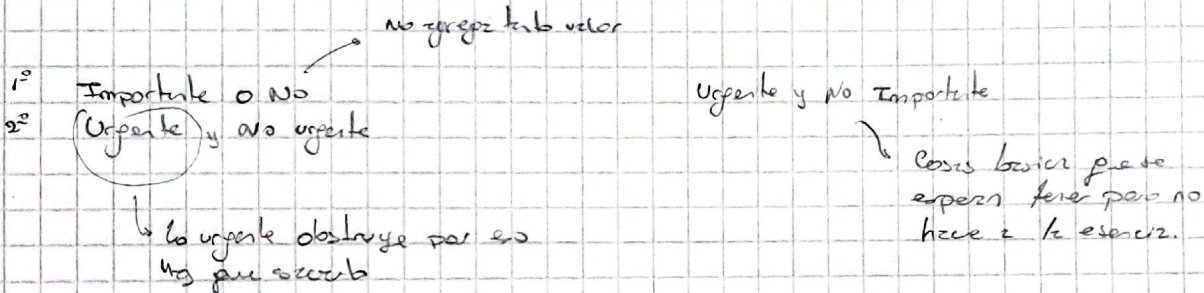 No agrega tanto valor
1º Importante o No
2º Urgente y No urgente
Lo urgente obstruye por eso
hay que sacarlo
Urgente y No Importante
Cosas basica que se
esperan tener pero no
hace a la esencia.